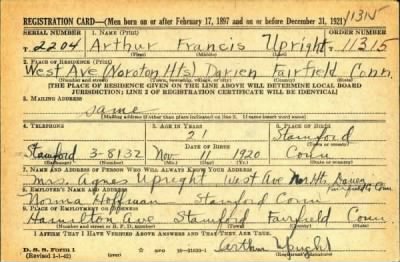 11315
REGISTRATION CARD—(Men born on or after February 17, 1897 and on or before December 31, 1921)
SERIAL NUMBER 1. NAME (Print) ORDER NUMBER
T 2204 Arthur Francis Upright 11315
(First) (Middle) (Last)
2. PLACE OF RESIDENCE (Print)
West Ave (Noroton Hts) Darien Fairfield Conn.
(Number and street) (Town, township, village, or city) (County) (State)
[THE PLACE OF RESIDENCE GIVEN ON THE LINE ABOVE WILL DETERMINE LOCAL BOARD
JURISDICTION; LINE 2 OF REGISTRATION CERTIFICATE WILL BE IDENTICAL]
3. MAILING ADDRESS
same
[Mailing address if other than place indicated on line 2. If same insert word same]
4. TELEPHONE 5. AGE IN YEARS 6. PLACE OF BIRTH
21 Stamford
DATE OF BIRTH (Town or county)
Stamford 3-8132 Nov. 11 1920 Conn
(Exchange) (Number) (Mo.) (Day) (Yr.) (State or country)
7. NAME AND ADDRESS OF PERSON WHO WILL ALWAYS KNOW YOUR ADDRESS
Mrs. Agnes Upright West Ave Nor Hts Darien
Fairfield Co Conn
8. EMPLOYER'S NAME AND ADDRESS
Norma Hoffman Stamford Conn
9. PLACE OF EMPLOYMENT OR BUSINESS
Hamilton Ave Stamford Fairfield Conn
(Number and street or R. F. D. number) (Town) (County) (State)
I AFFIRM THAT I HAVE VERIFIED ABOVE ANSWERS AND THAT THEY ARE TRUE.
D. S. S. Form 1
(Revised 1-1-42) Arthur Upright